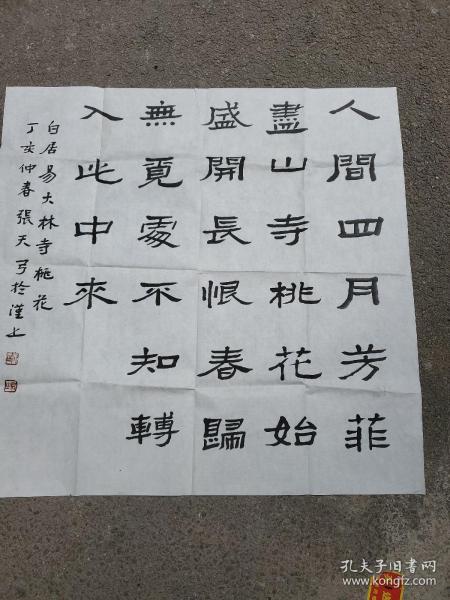 人間四月芳菲
盡山寺桃花始
盛開長恨春歸
無覓處不知轉
入此中來
白居易大林寺桃花
丁亥仲春張天弓於漢上
孔夫子旧书网
www.kongfz.com